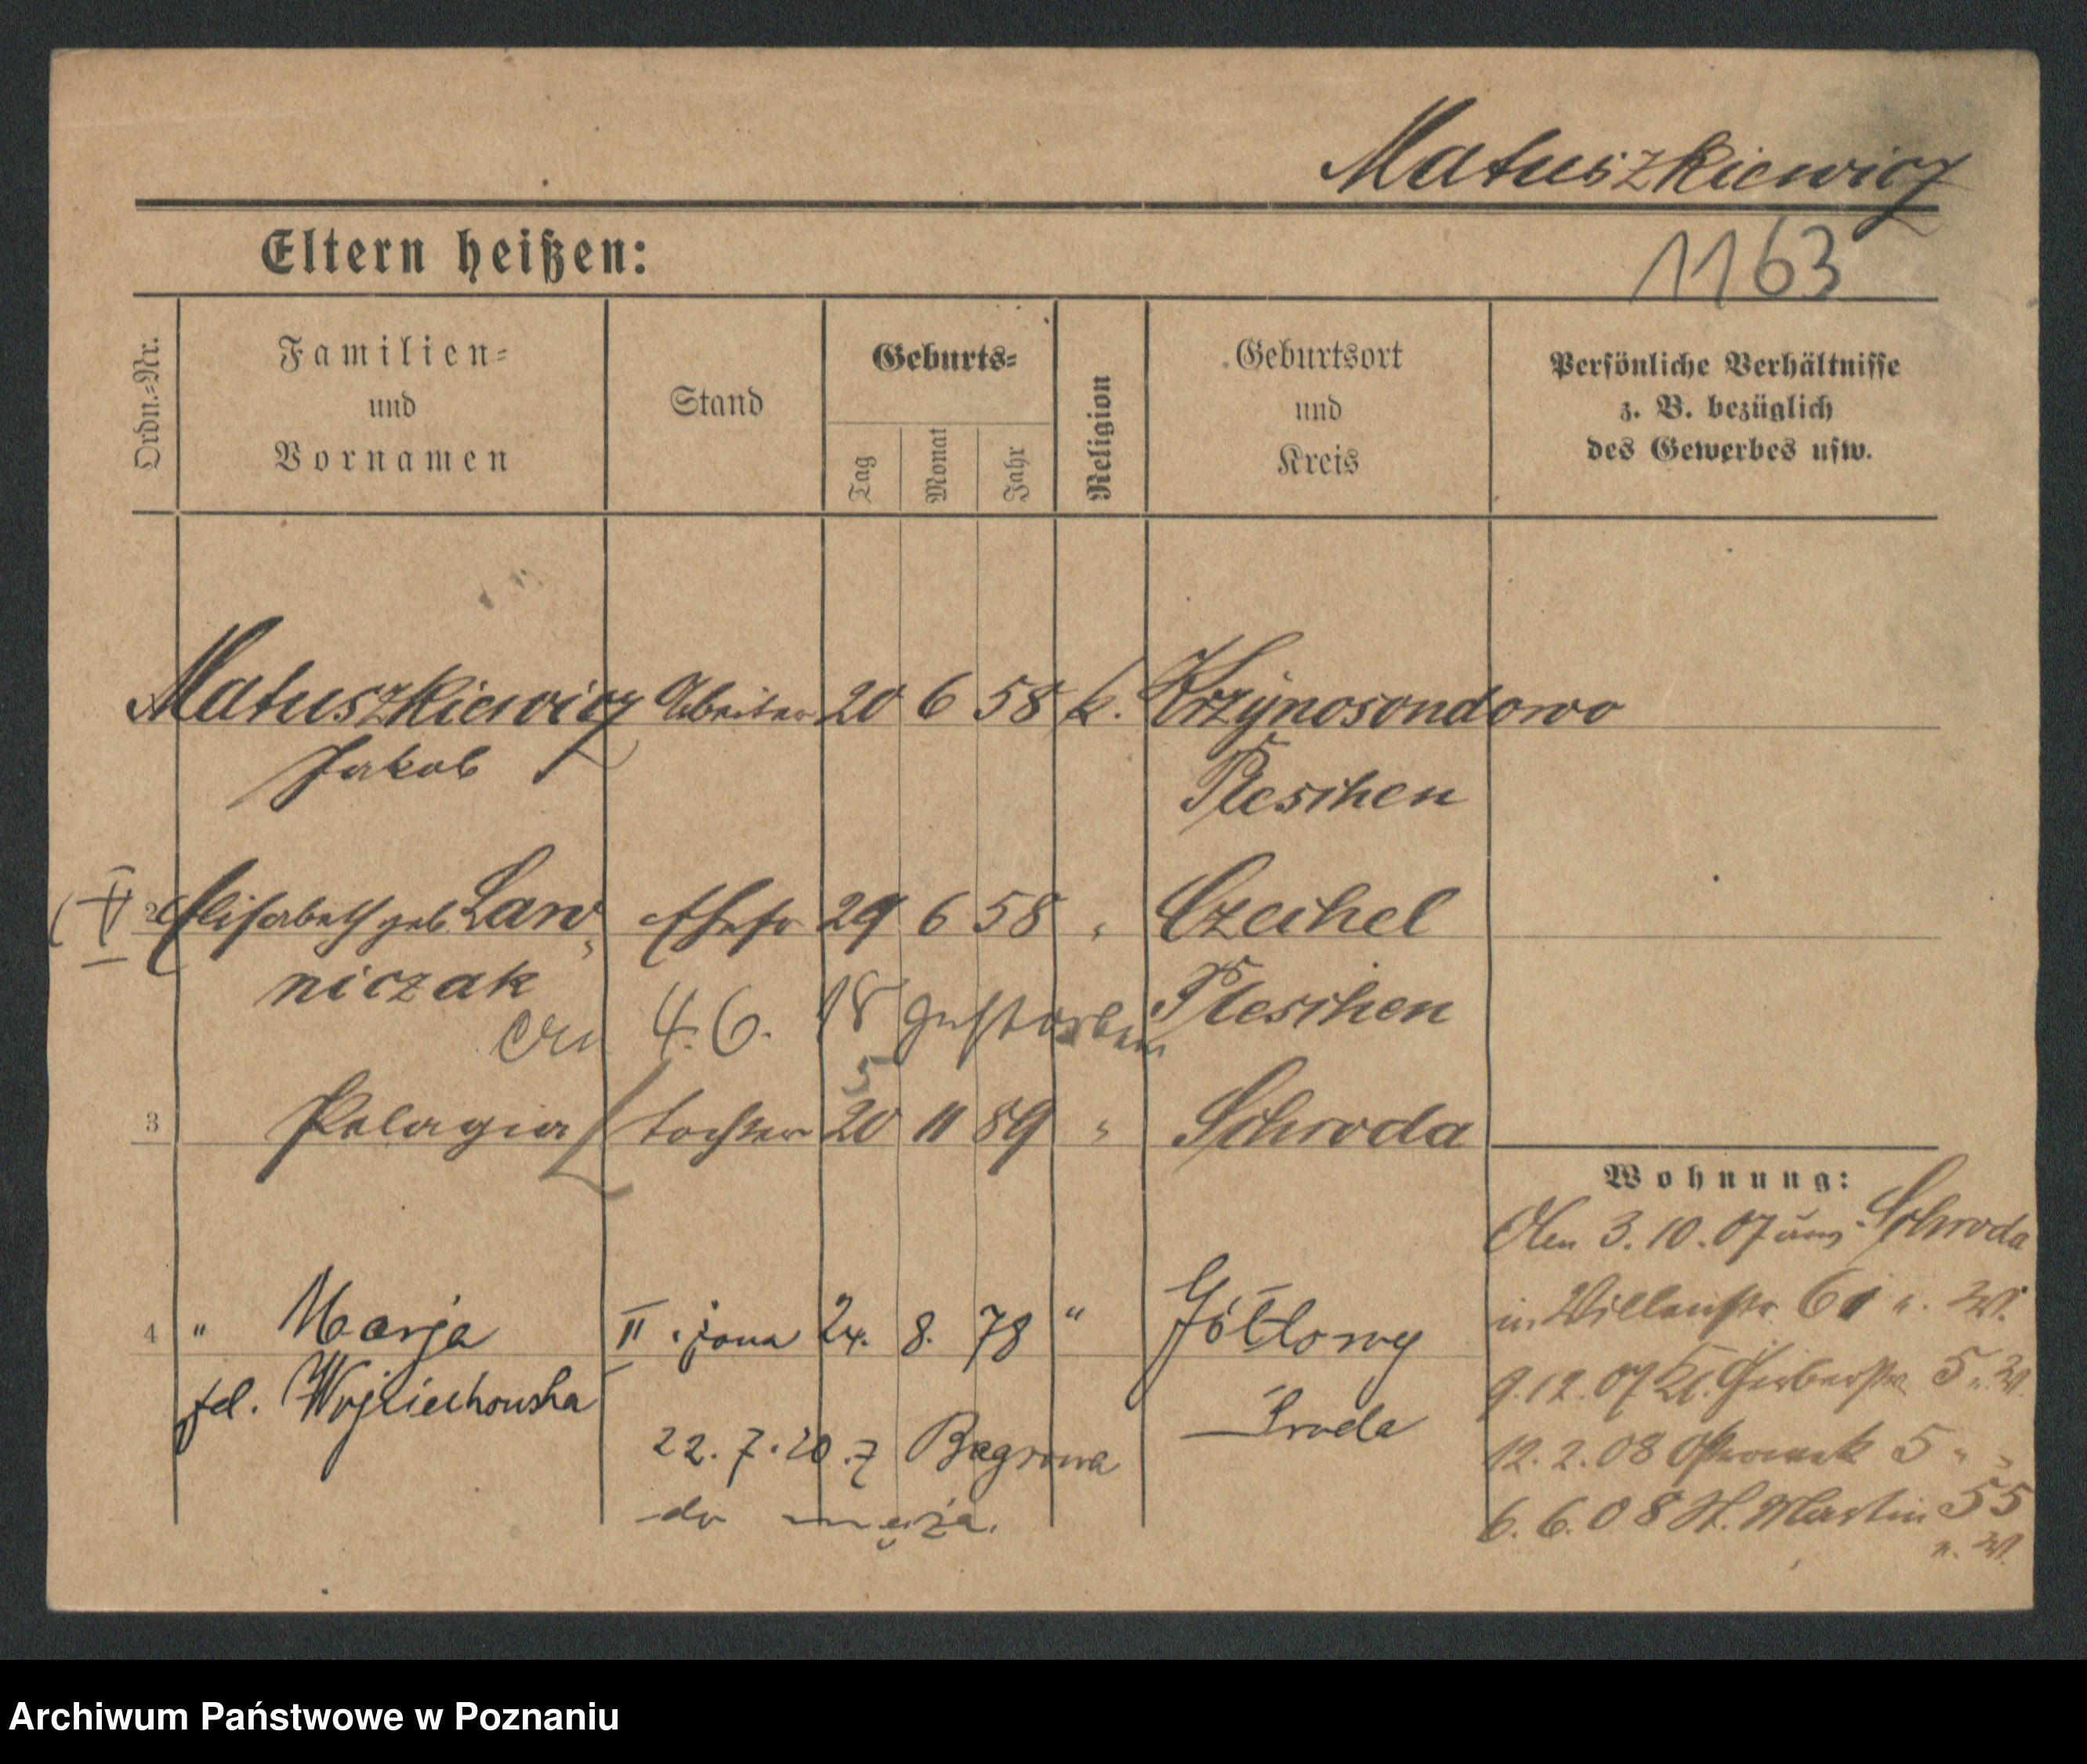 Matuszkiewicz
Eltern heißen:
1163
Ordn.=Nr.
Familien=
und
Vornamen
Stand
Geburts=
Tag
Monat
Jahr
Religion
Geburtsort
und
Kreis
Persönliche Verhältnisse
z. B. bezüglich
des Gewerbes usw.
Matuszkiewicz Arbeiter 20 6 58 k. Krzynosondowo
Jakob Pleschen
2 Elisabeth geb. Law= Ehefr 29 6 58 " Czechel
niczak Pleschen
4. 6. 18 gestorben
5
3 Pelagia Tochter 20 11 89 " Schroda
Wohnung:
3. 10. 07 aus Schroda
in 6 u. W.
4 " Marja II. żona 24. 8. 78 "
9. 12. 07 Kl. Gerberstr. 5 u. W.
fel. Wojciechowska Środa
22. 7. 20. z Bagrowa
12. 2. 08 Ostrowek 5 " "
do męża.
6. 6. 08 St. Martin 55
u. W.
Archiwum Państwowe w Poznaniu